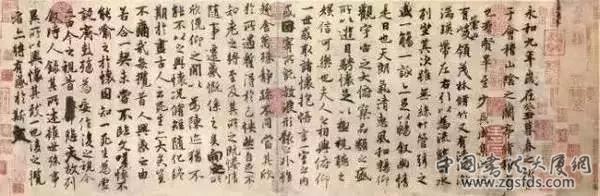 永和九年歲在癸丑暮春之初會
于會稽山陰之蘭亭脩稧事
也羣賢畢至少長咸集此地
有崇山峻領茂林脩竹又有清流激
湍暎帶左右引以為流觴曲水
列坐其次雖無絲竹管弦之
盛一觴一詠亦足以暢敘幽情
是日也天朗氣清惠風和暢仰
觀宇宙之大俯察品類之盛
所以遊目騁懷足以極視聽之
娛信可樂也夫人之相與俯仰
一世或取諸懷抱悟言一室之內
或因寄所託放浪形骸之外雖
趣舍萬殊靜躁不同當其欣
於所遇蹔得於己怏然自足不
知老之將至及其所之既惓情
隨事遷感慨係之矣向之所
欣俛仰之閒以為陳迹猶不
能不以之興懷況脩短隨化終
期於盡古人云死生亦大矣豈
不痛哉每攬昔人興感之由
若合一契未嘗不臨文嗟悼不
能喻之於懷固知一死生為虛
誕齊彭殤為妄作後之視今
亦由今之視昔悲夫故列
敘時人錄其所述雖世殊事
異所以興懷其致一也後之攬
者亦將有感於斯文
中国书法大赛网
www.zgsfds.com